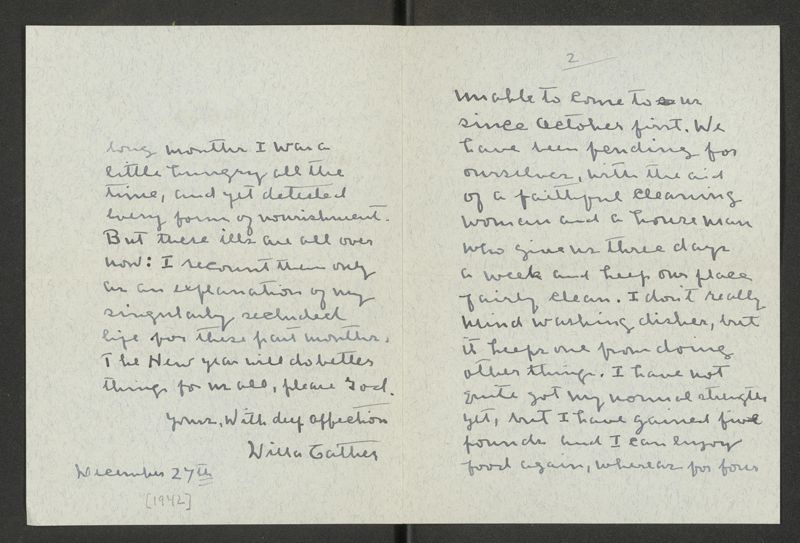 2
unable to come to us
since October first. We
have been fending for
ourselves, with the aid
of a faithful cleaning
woman and a house man
who give us three days
a week and keep our place
fairly clean. I don't really
mind washing dishes, but
it keeps one from doing
other things. I have not
quite got my normal strength
yet, but I have gained five
pounds and I can enjoy
food again, whereas for four
long months I was a
little hungry all the
time, and yet detested
every form of nourishment.
But these ills are all over
now: I recount them only
as an explanation of my
singularly secluded
life for these past months.
The New year will do better
things for us all, please God.
Yours, With deep affection
Willa Cather
December 27th
[1942]